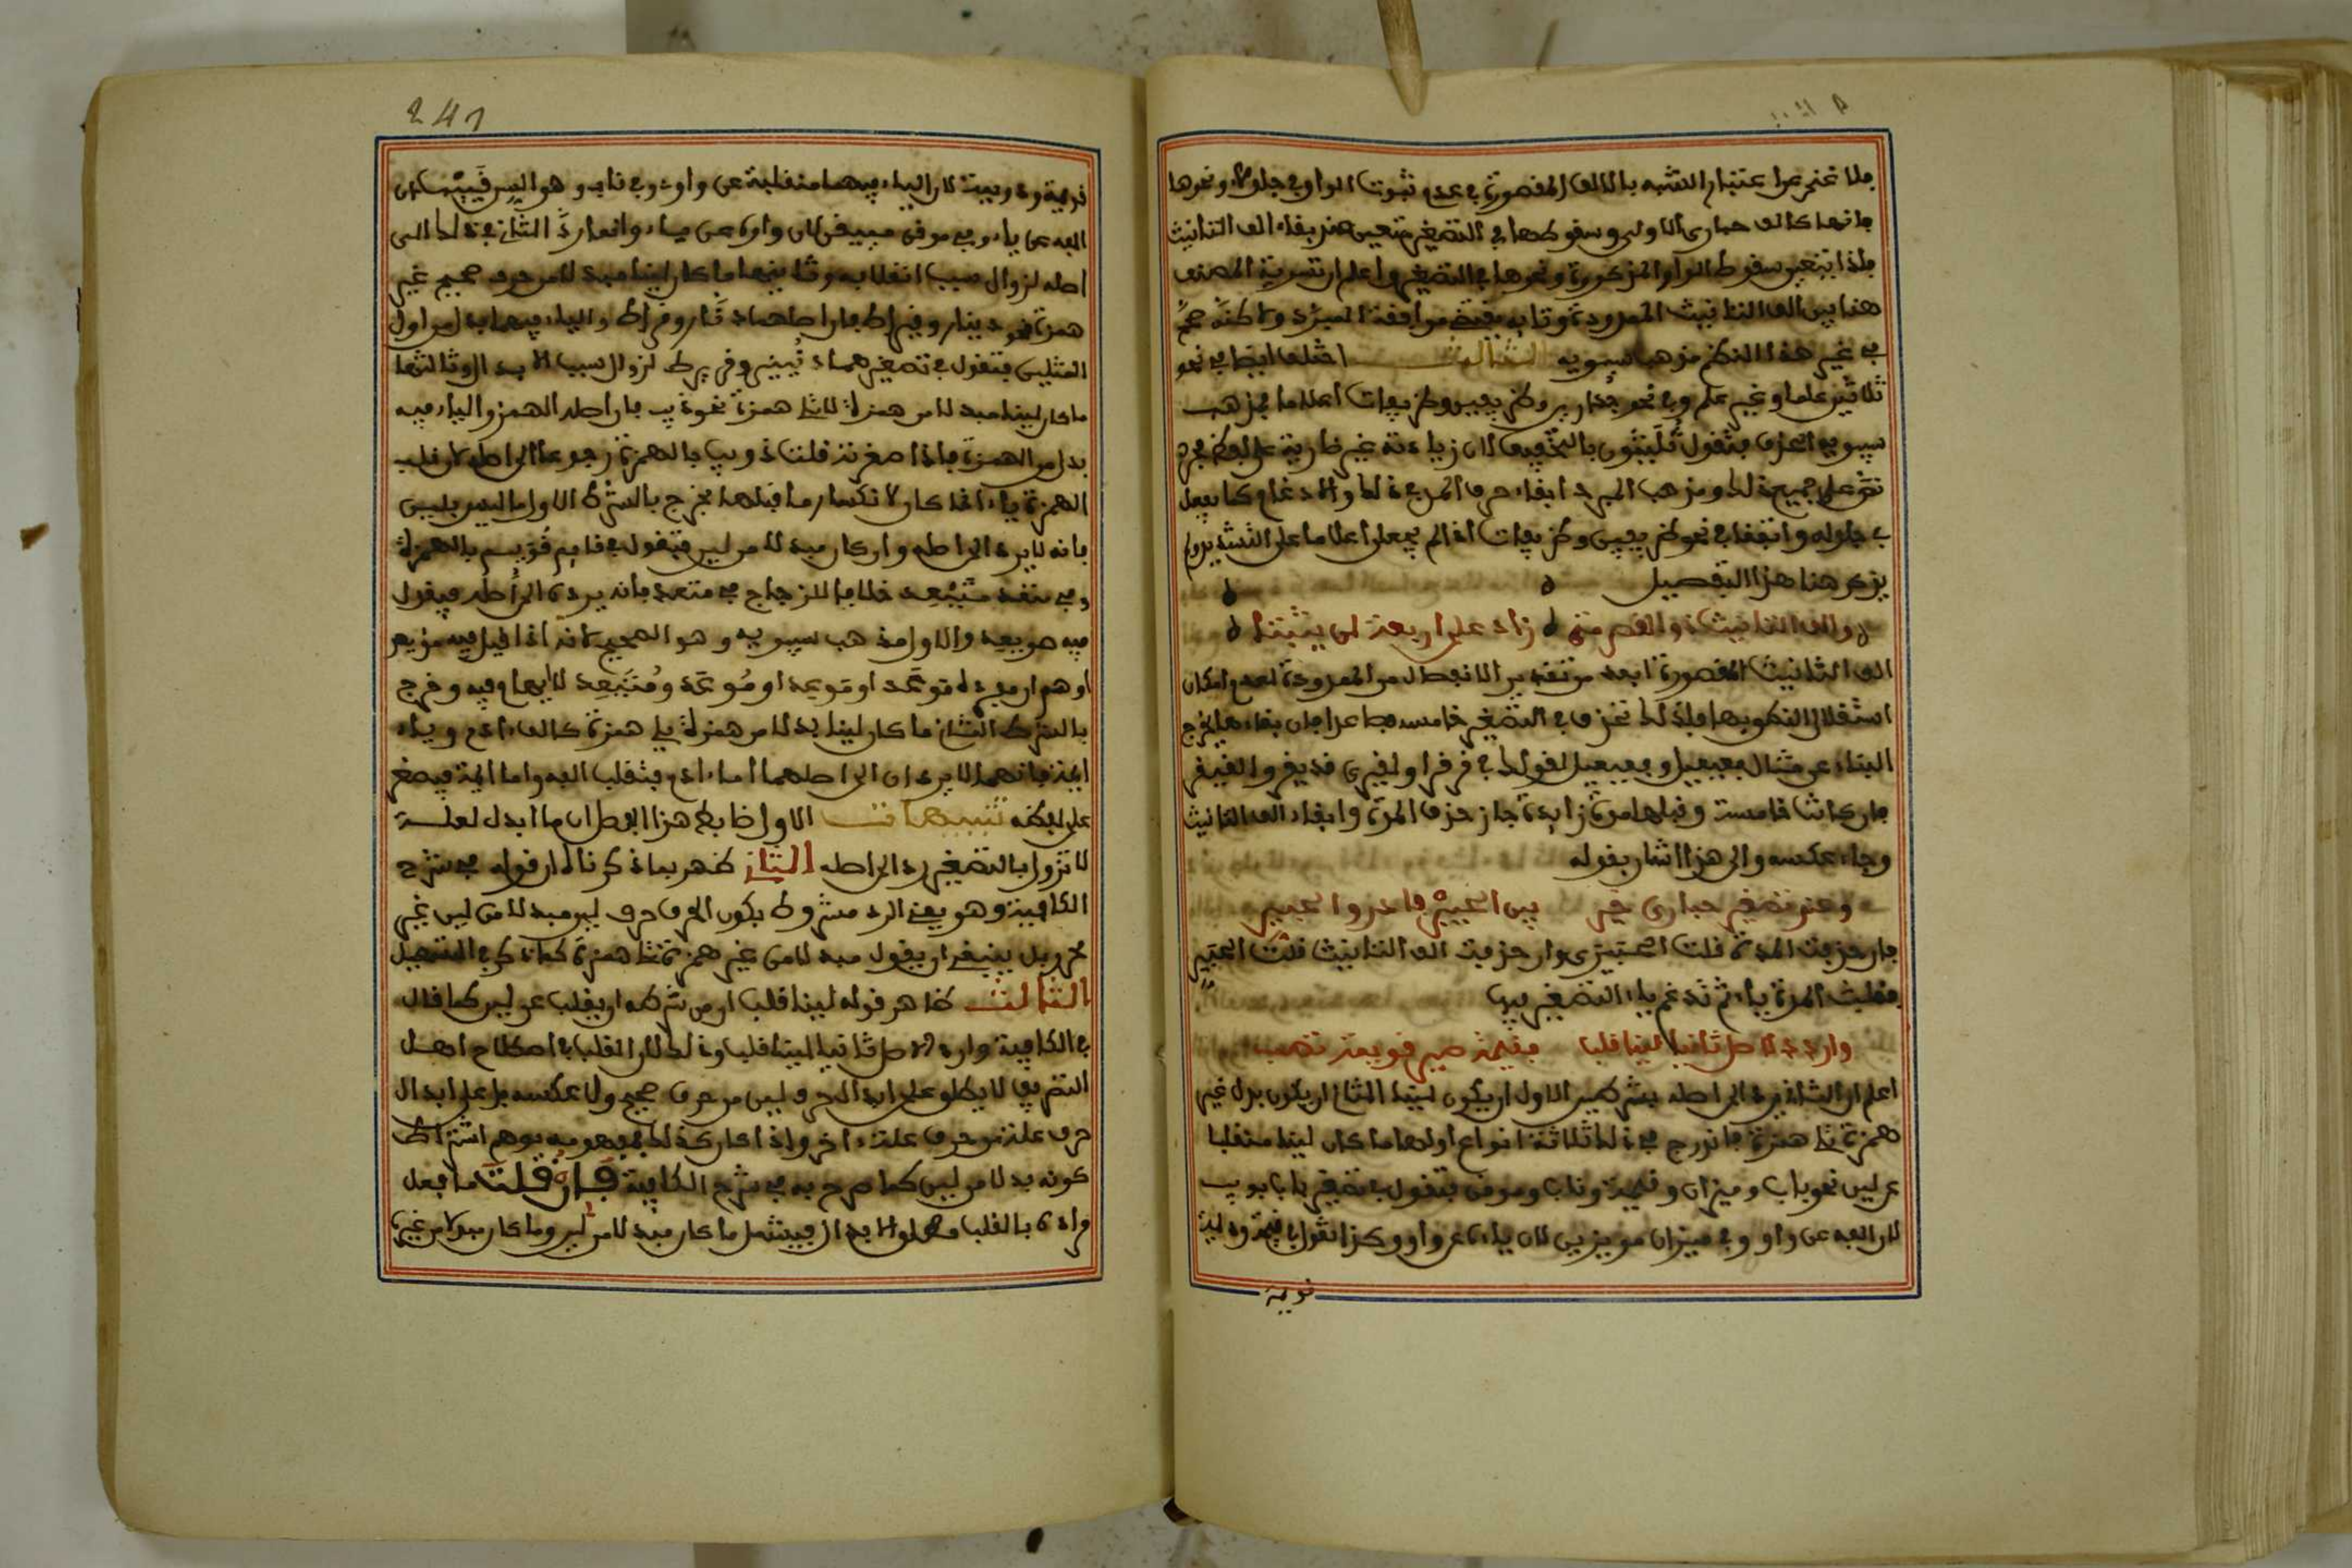 فلا غنى عن اعتبار الشبه بالالف المقصورة في عدم ثبوت الواو في جلولاء ونحوها
فانها كالف حبارى الاولى وسقوطها في التصغير متعين عند بقاء الف التانيث
فلذا يتعين سقوط الواو المذكورة ونحوها في التصغير واعلم ان تسوية المصنف
هنا بين الف التانيث الممدودة وتايه يقتضي موافقة المبرد ولاكنه صحح
في غير هذا النظم مذهب سيبويه الثالث اختلف ايضا في نحو
ثلاثين علما او غير علم وفي نحو جدارين وظريفين وظريفات اعلاما فمذهب
سيبويه الحذف فتقول ثليثون بالتخفيف لان زيادته غير طارية على لفظ مجرد
على جميع ذلك ومذهب المبرد ابقاء حرف المد في ذلك والادغام كما يفعل
في جلولاء واتفقا في نحو ظريفين وظريفات اذا لم يجعلن اعلاما على التشديد ولم
يذكر هنا هذا التفصيل
والف التانيث ذو القصر متى زاد على اربعة لن يثبتا
الف التانيث المقصورة ابعد من تقدير الانفصال من الممدودة لعدم امكان
استقلال النطق بها فلذلك تحذف في التصغير خامسة فصاعدا فان بقاءها يخرج
البناء عن مثال فعيعيل وفعيعل كقولك في قرقرا ولغيزى قريقر ولغيغز
فان كانت خامسة وقبلها مدة زايدة جاز حذف المدة وابقاء الف التانيث
وجاء عكسه والى هذا اشار بقوله
وعند تصغير حبارى خير بين الحبيرى فادر والحبير
فان حذفت المدة قلت الحبيرى وان حذفت الف التانيث قلت الحبير
بقلب المدة ياء ثم تدغم ياء التصغير فيها
واردد لاصل ثانيا لينا قلب فقيمة صير قويمة تصب
اعلم ان الثاني يرد الى اصله بشرطين الاول ان يكون لينا الثاني ان يكون بدل غير
همزة تلي همزة فاندرج في ذلك ثلاثة انواع اولها ما كان لينا منقلبا
عن لين نحو باب وميزان وقيمة وناب وموقن فتقول في تصغير باب بويب
لان الفه عن واو وفي ميزان مويزين لان ياءه عن واو وكذا تقول في قيمة وديمة
قويمة
241
قويمة ودويمة لان الياء فيهما منقلبة عن واو وفي ناب وهو السن نييب لان
الفه عن ياء وفي موقن مييقن لان واوه عن ياء وانما رد الثاني في ذلك الى
اصله لزوال سبب انقلابه وثانيها ما كان لينا مبدلا من حرف صحيح غير
همزة نحو دينار وقيراط فان اصلهما دنار وقراط والياء فيهما بدل من اول
المثلين فتقول في تصغيرهما دنينير وقريريط لزوال سبب الابدال وثالثها
ما كان لينا مبدلا من همزة لا تلي همزة نحو ذيب فان اصله الهمز والياء فيه
بدل من الهمزة فاذا صغرته قلت ذويب بالهمزة رجوعا الى اصله لان قلب
الهمزة ياء انما كان لانكسار ما قبلها فخرج بالشرط الاول ما ليس بلين
فانه لا يرد الى اصله وان كان مبدلا من لين فتقول في قايم قويم بالهمزة
وفي متعد متيعد خلافا للزجاج في متعد فانه يرده الى اصله فيقول
فيه مويعد والاول مذهب سيبويه وهو الصحيح لانه اذا قيل فيه مويعد
اوهم ان مكبره موعد او موعد او موعد ومتيعد لا ايهام فيه وخرج
بالشرط الثاني ما كان لينا بدلا من همزة يلي همزة كالف ءادم وياء
ايمة فانهما لا يردان الى اصلهما اما ءادم فتقلب الفه واما ايمة فيصغر
على لفظه تنبيهات الاول ضابط هذا الفصل ان ما ابدل لعلة
لا تزول بالتصغير رد الى اصله الثاني ظهر بما ذكرناه ان قوله في شرح
الكافية وهو يعني الرد مشروط بكون الحرف حرف لين مبدلا من لين غير
محرر بل ينبغي ان يقول مبدلا من غير همزة تلي همزة كما ذكر في التسهيل
الثالث ظاهر قوله لينا قلب ان من شرطه ان يقلب عن لين كما قال
في الكافية واردد لاصل ثانيا لينا قلب وذلك لان القلب في اصطلاح اهل
التصريف لا يطلق على ابدال حرف لين من حرف صحيح ولا عكسه بل على ابدال
حرف علة من حرف علة ءاخر واذا كان كذلك فمفهومه يوهم اشتراط
كونه بدلا من لين كما صرح به في شرح الكافية فان قلت ما فعل
مراده بالقلب مطلق الابدال فيشمل ما كان مبدلا من لين وما كان مبدلا من غيره